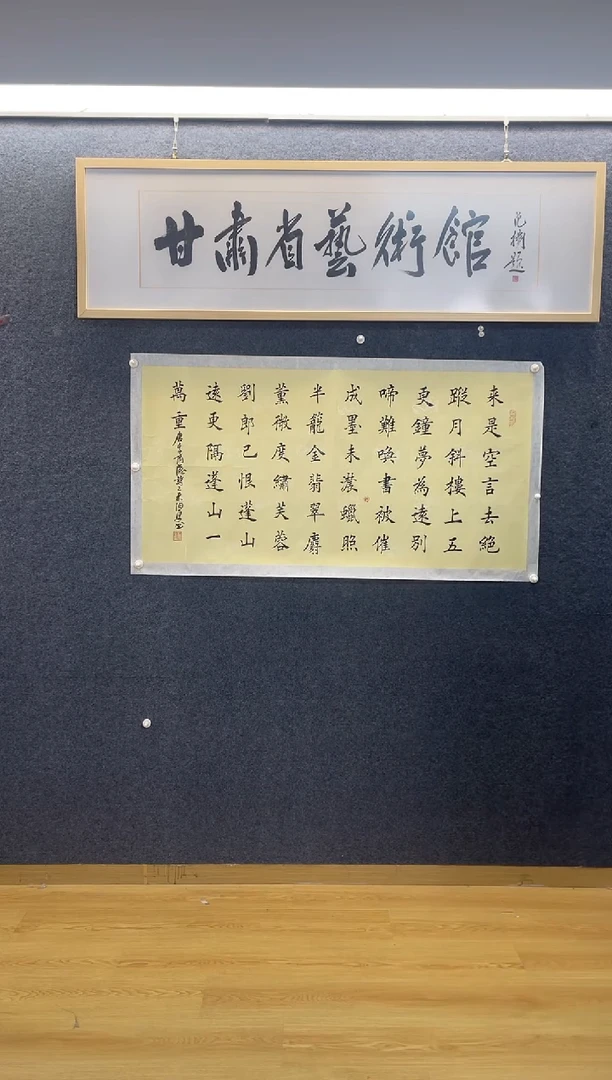 甘肅省藝術館
題
来是空言去絕
蹤月斜樓上五
更鐘夢為遠別
啼難喚書被催
成墨未濃蠟照
半籠金翡翠麝
薰微度繡芙蓉
劉郎已恨蓬山
遠更隔蓬山一
萬重